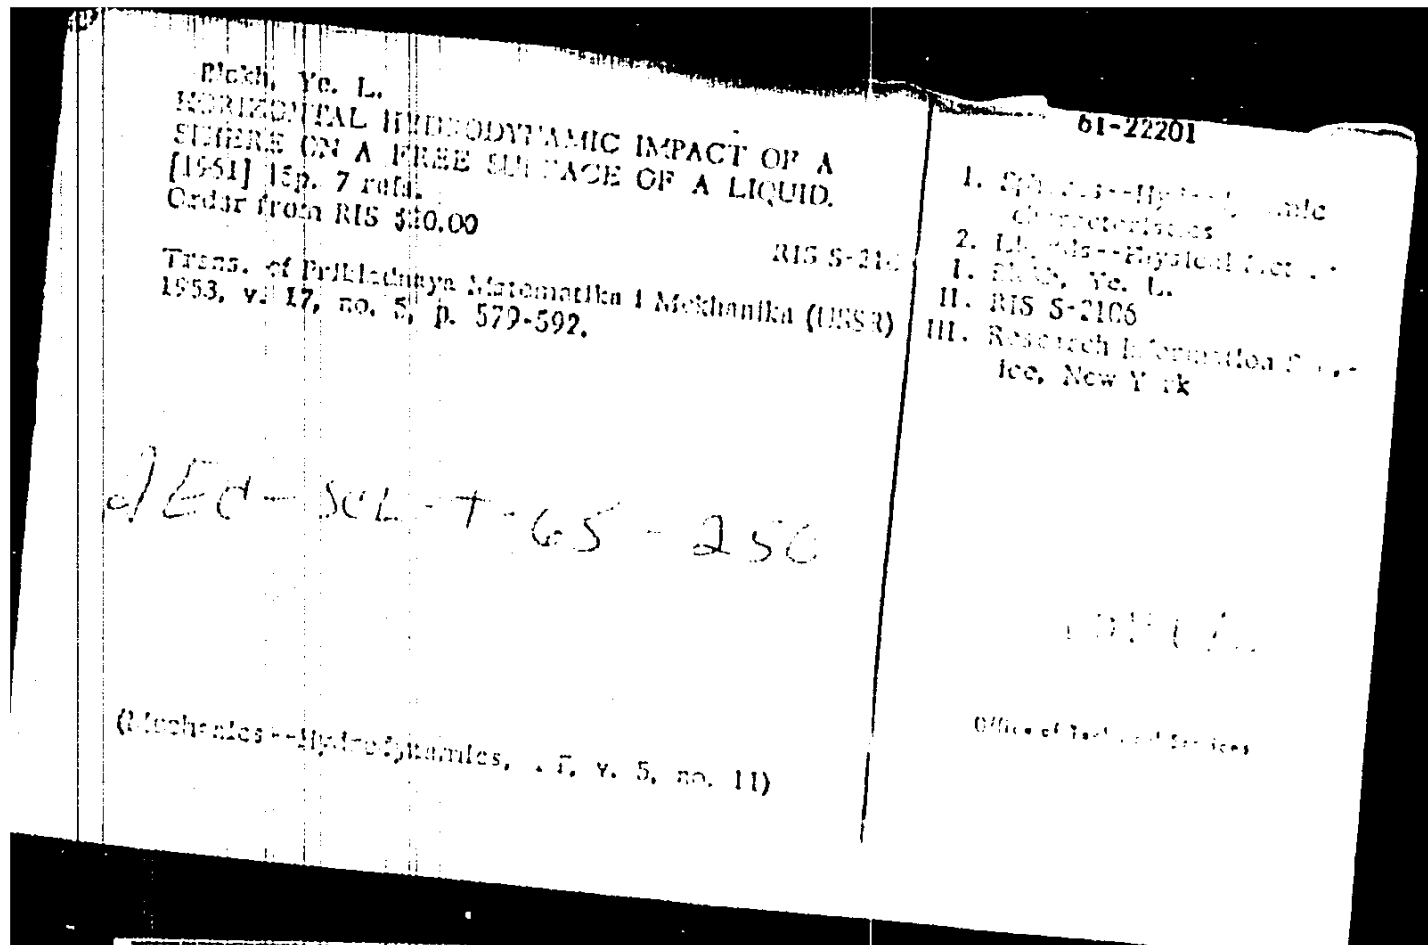 Blokh, Ye. L.
HORIZONTAL HYDRODYNAMIC IMPACT OF A
SPHERE ON A FREE SURFACE OF A LIQUID.
[1961] 15p. 7 refs.
Order from RIS $20.00
RIS S-210
Trans. of Prikladnaya Matematika i Mekhanika (USSR)
1953, v. 17, no. 5, p. 579-592.
-T-65-250
(Mechanics--Hydrodynamics, v. 5, no. 11)
61-22201
1. Spheres--Hydrodynamic
characteristics
2. Liquids--Physical
I. Blokh, Ye. L.
II. RIS S-2106
III. Research Information
ice, New York
Office of Technical Services